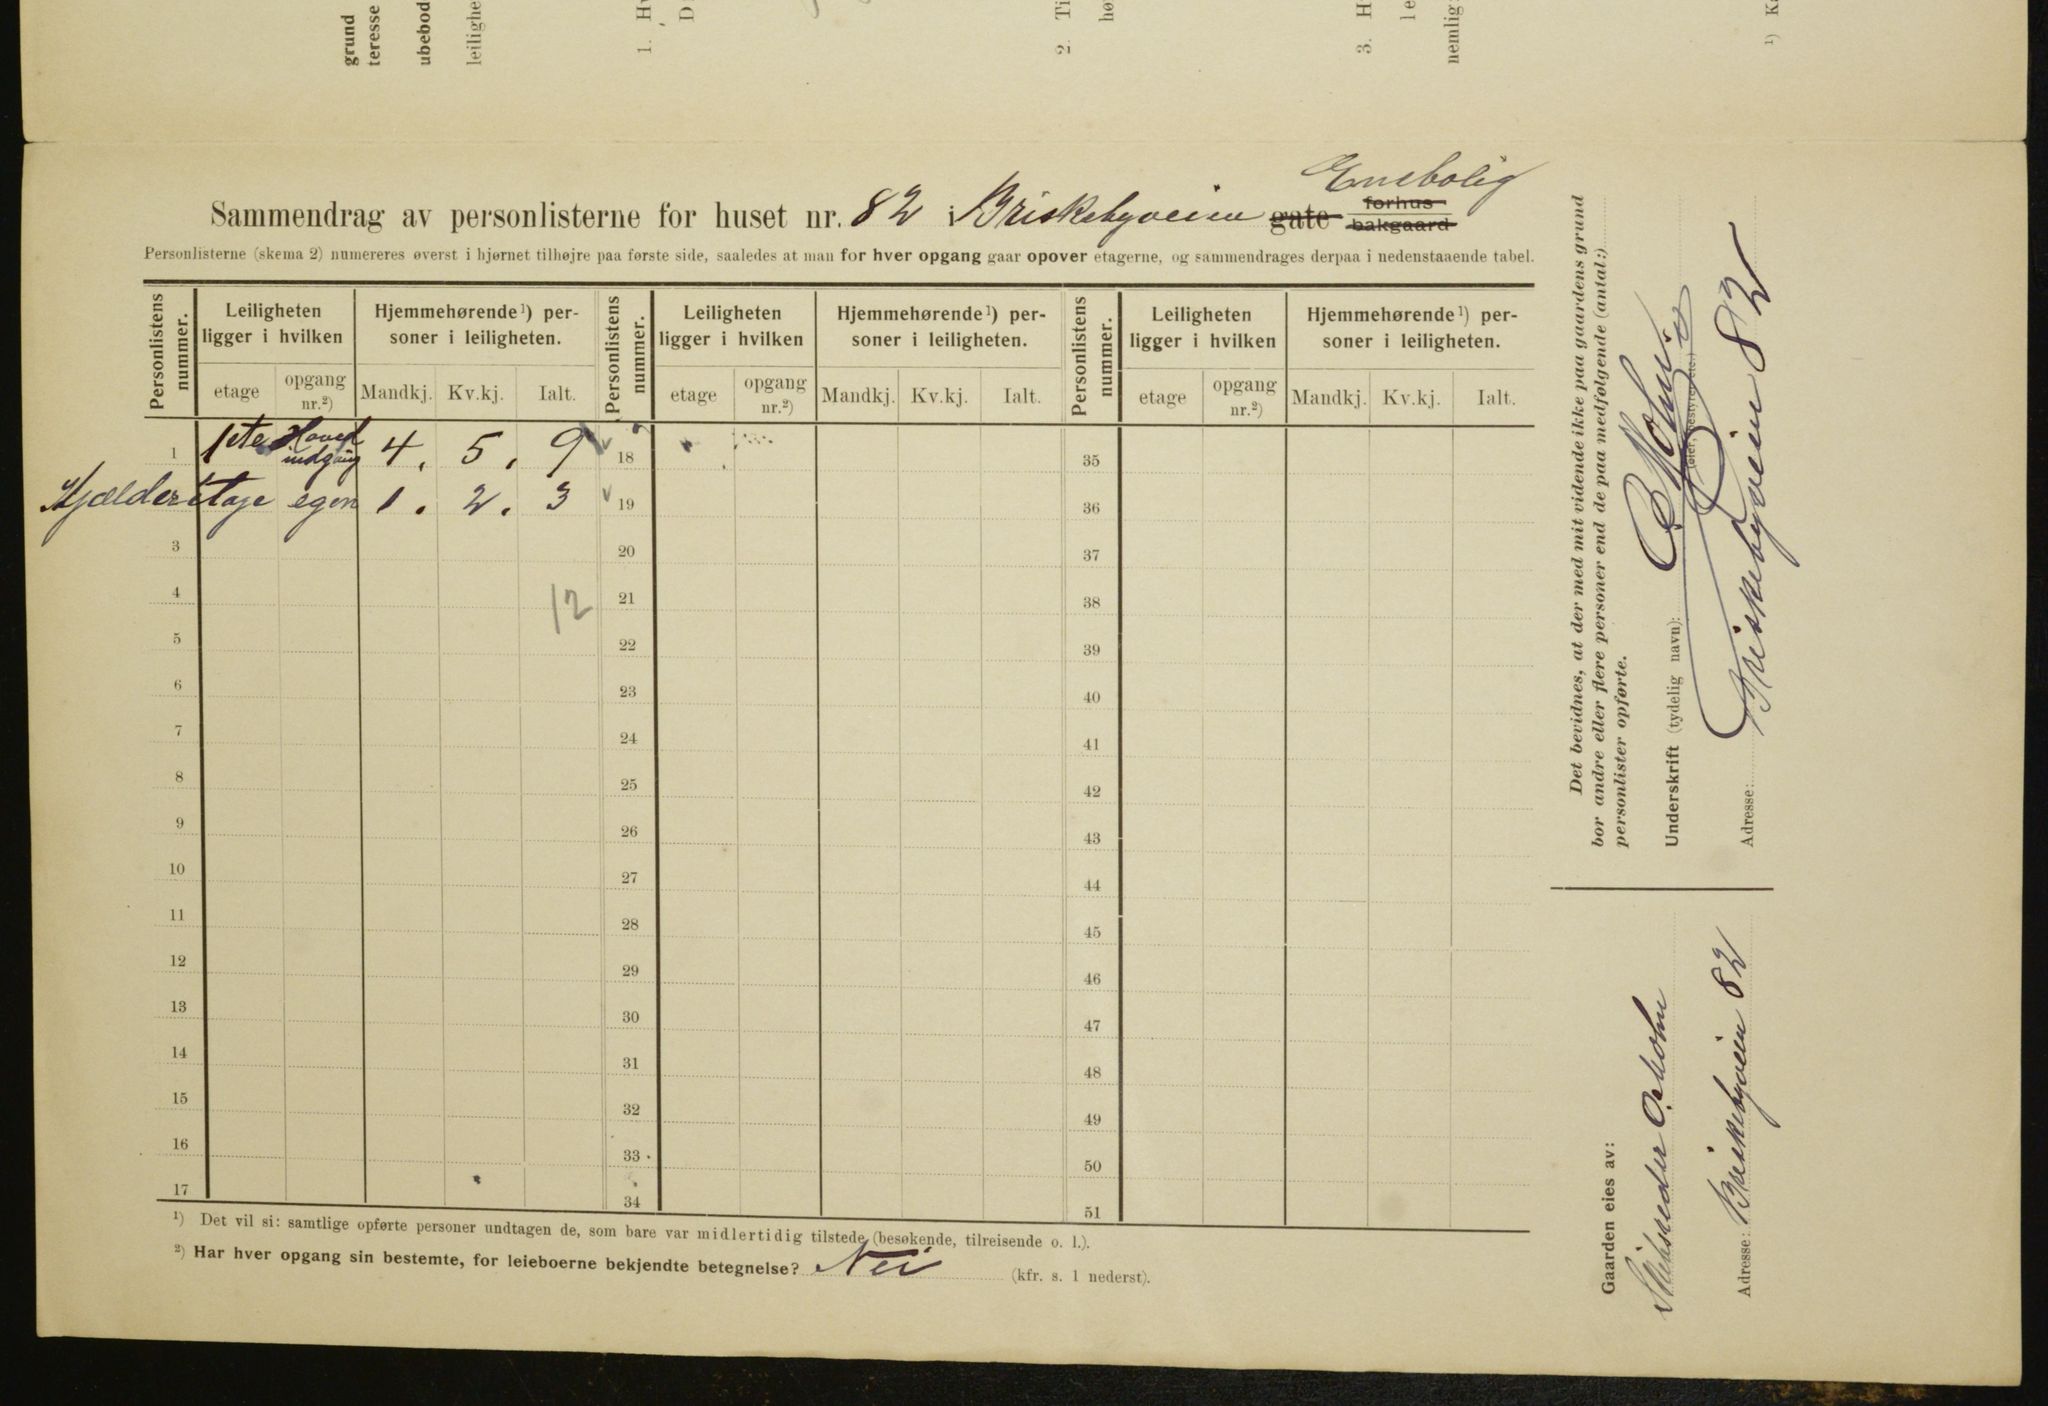 grund
teresse
ubebod
leilighe
1. Hv
D
2. Ti
hø
3. H
le
nemlig:
¹) Ka
Enebolig
Sammendrag av personlisterne for huset nr. 82 i Briskebyveien gate forhus
bakgaard
Personlisterne (skema 2) numereres øverst i hjørnet tilhøjre paa første side, saaledes at man for hver opgang gaar opover etagerne, og sammendrages derpaa i nedenstaaende tabel.
Personlistens nummer. Leiligheten ligger i hvilken Hjemmehørende¹) personer i leiligheten. Personlistens nummer. Leiligheten ligger i hvilken Hjemmehørende¹) personer i leiligheten. Personlistens nummer. Leiligheten ligger i hvilken Hjemmehørende¹) personer i leiligheten.
etage opgang nr.²) Mandkj. Kv.kj. Ialt. etage opgang nr.²) Mandkj. Kv.kj. Ialt. etage opgang nr.²) Mandkj. Kv.kj. Ialt.
1 1ste Hoved indgang 4. 5. 9 18 35
Kjælderetage egen 1. 2. 3 19 36
3 20 37
4 12 21 38
5 22 39
6 23 40
7 24 41
8 25 42
9 26 43
10 27 44
11 28 45
12 29 46
13 30 47
14 31 48
15 32 49
16 33 50
17 34 51
¹) Det vil si: samtlige opførte personer undtagen de, som bare var midlertidig tilstede (besøkende, tilreisende o. l.).
²) Har hver opgang sin bestemte, for leieboerne bekjendte betegnelse? Nei (kfr. s. 1 nederst).
Det bevidnes, at der med mit vidende ikke paa gaardens grund
bor andre eller flere personer end de paa medfølgende (antal:)
personlister opførte.
Underskrift (tydelig navn): Holm
(eier, bestyrer etc.)
Adresse: Briskebyveien 82
Gaarden eies av:
Skibsreder Holm
Adresse: Briskebyveien 82